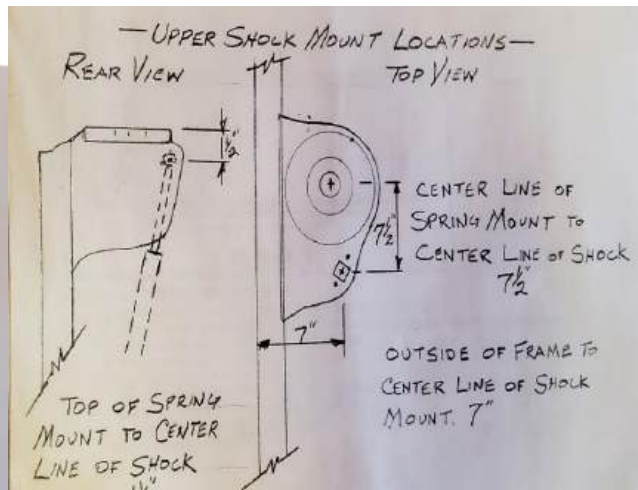 —UPPER SHOCK MOUNT LOCATIONS—
REAR VIEW
TOP VIEW
1½"
7½"
CENTER LINE OF
SPRING MOUNT TO
CENTER LINE OF SHOCK
7½"
7"
OUTSIDE OF FRAME TO
CENTER LINE OF SHOCK
MOUNT. 7"
TOP OF SPRING
MOUNT TO CENTER
LINE OF SHOCK